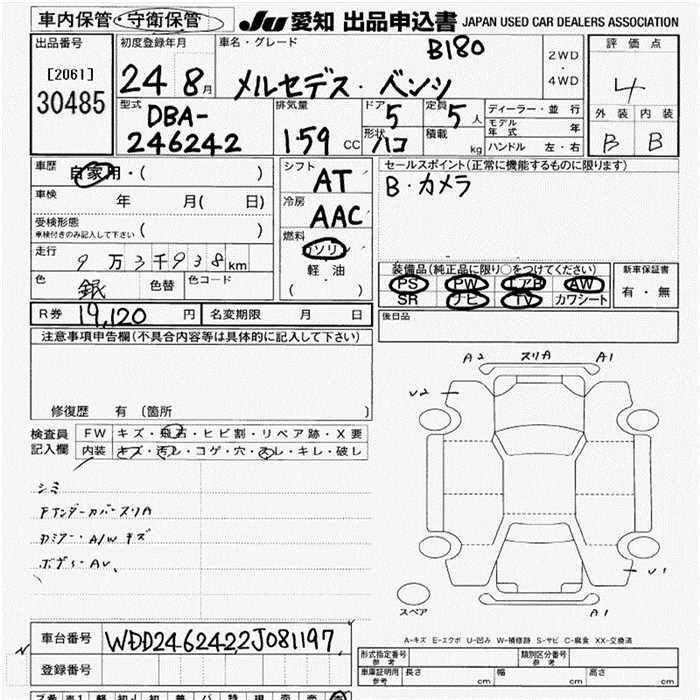 車内保管・守衛保管
Ju 愛知 出品申込書 JAPAN USED CAR DEALERS ASSOCIATION
出品番号
[2061]
30485
初度登録年月
24 8月
車名・グレード
B180
メルセデス・ベンツ
2WD
・
4WD
評価点
4
外装 内装
B B
型式
DBA-
246242
排気量
1.59 CC
ドア 5
形状 ハコ
定員 5人
積載 kg
ディーラー・並行
モデル年式 年
ハンドル 左・右
車歴 自家用・( )
車検 年 月( 日)
受検形態
車検付きのみ記入して下さい ( )
走行 9万3千938km
色 銀 色替 色コード
シフト AT
冷房 AAC
燃料
ガソリン
軽油
( )
セールスポイント(正常に機能するものに限ります)
B・カメラ
装備品(純正品に限り○をつけてください)
PS PW エアB AW
SR ナビ TV カワシート
新車保証書
有・無
R券 19,120円 名変期限 月 日
後日品
注意事項申告欄(不具合内容等は具体的に記入して下さい)
修復歴 有 (箇所 )
検査員記入欄
FW キズ・飛石・ヒビ割・リペア跡・X要
内装 キズ・汚レ・コゲ・穴・スレ・キレ・破レ
シミ
アンダーカバースリA
カミラー・A/Wキズ
ボディーAU、
A2 スリA A1
U2
U1
A1
スペア
A-キズ E-エクボ U-凹み W-補修跡 S-サビ C-腐食 XX-交換済
車台番号 WDD2462422J081197
登録番号
形式指定番号 参考
類別区分番号 参考
車庫証明用 参考 長さ cm 幅 cm 高さ cm